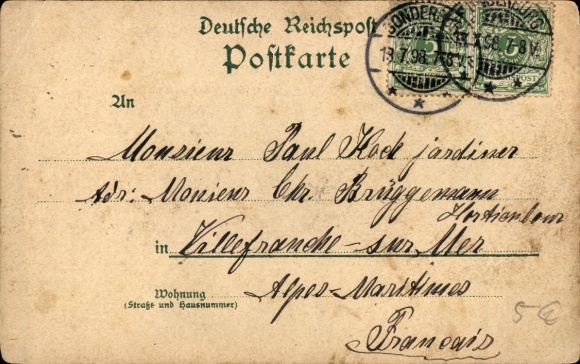 Deutsche Reichspost
Postkarte
SONDERBURG
13.7.98.7-8V.
5
POST
An
Monsieur Paul Kock jardiner
Adr: Monieur Chr. Brüggemann
Hortienlour
in Villefranche-sur Mer
Wohnung
(Straße und Hausnummer)
Alpes-Maritimes
Francais
5€